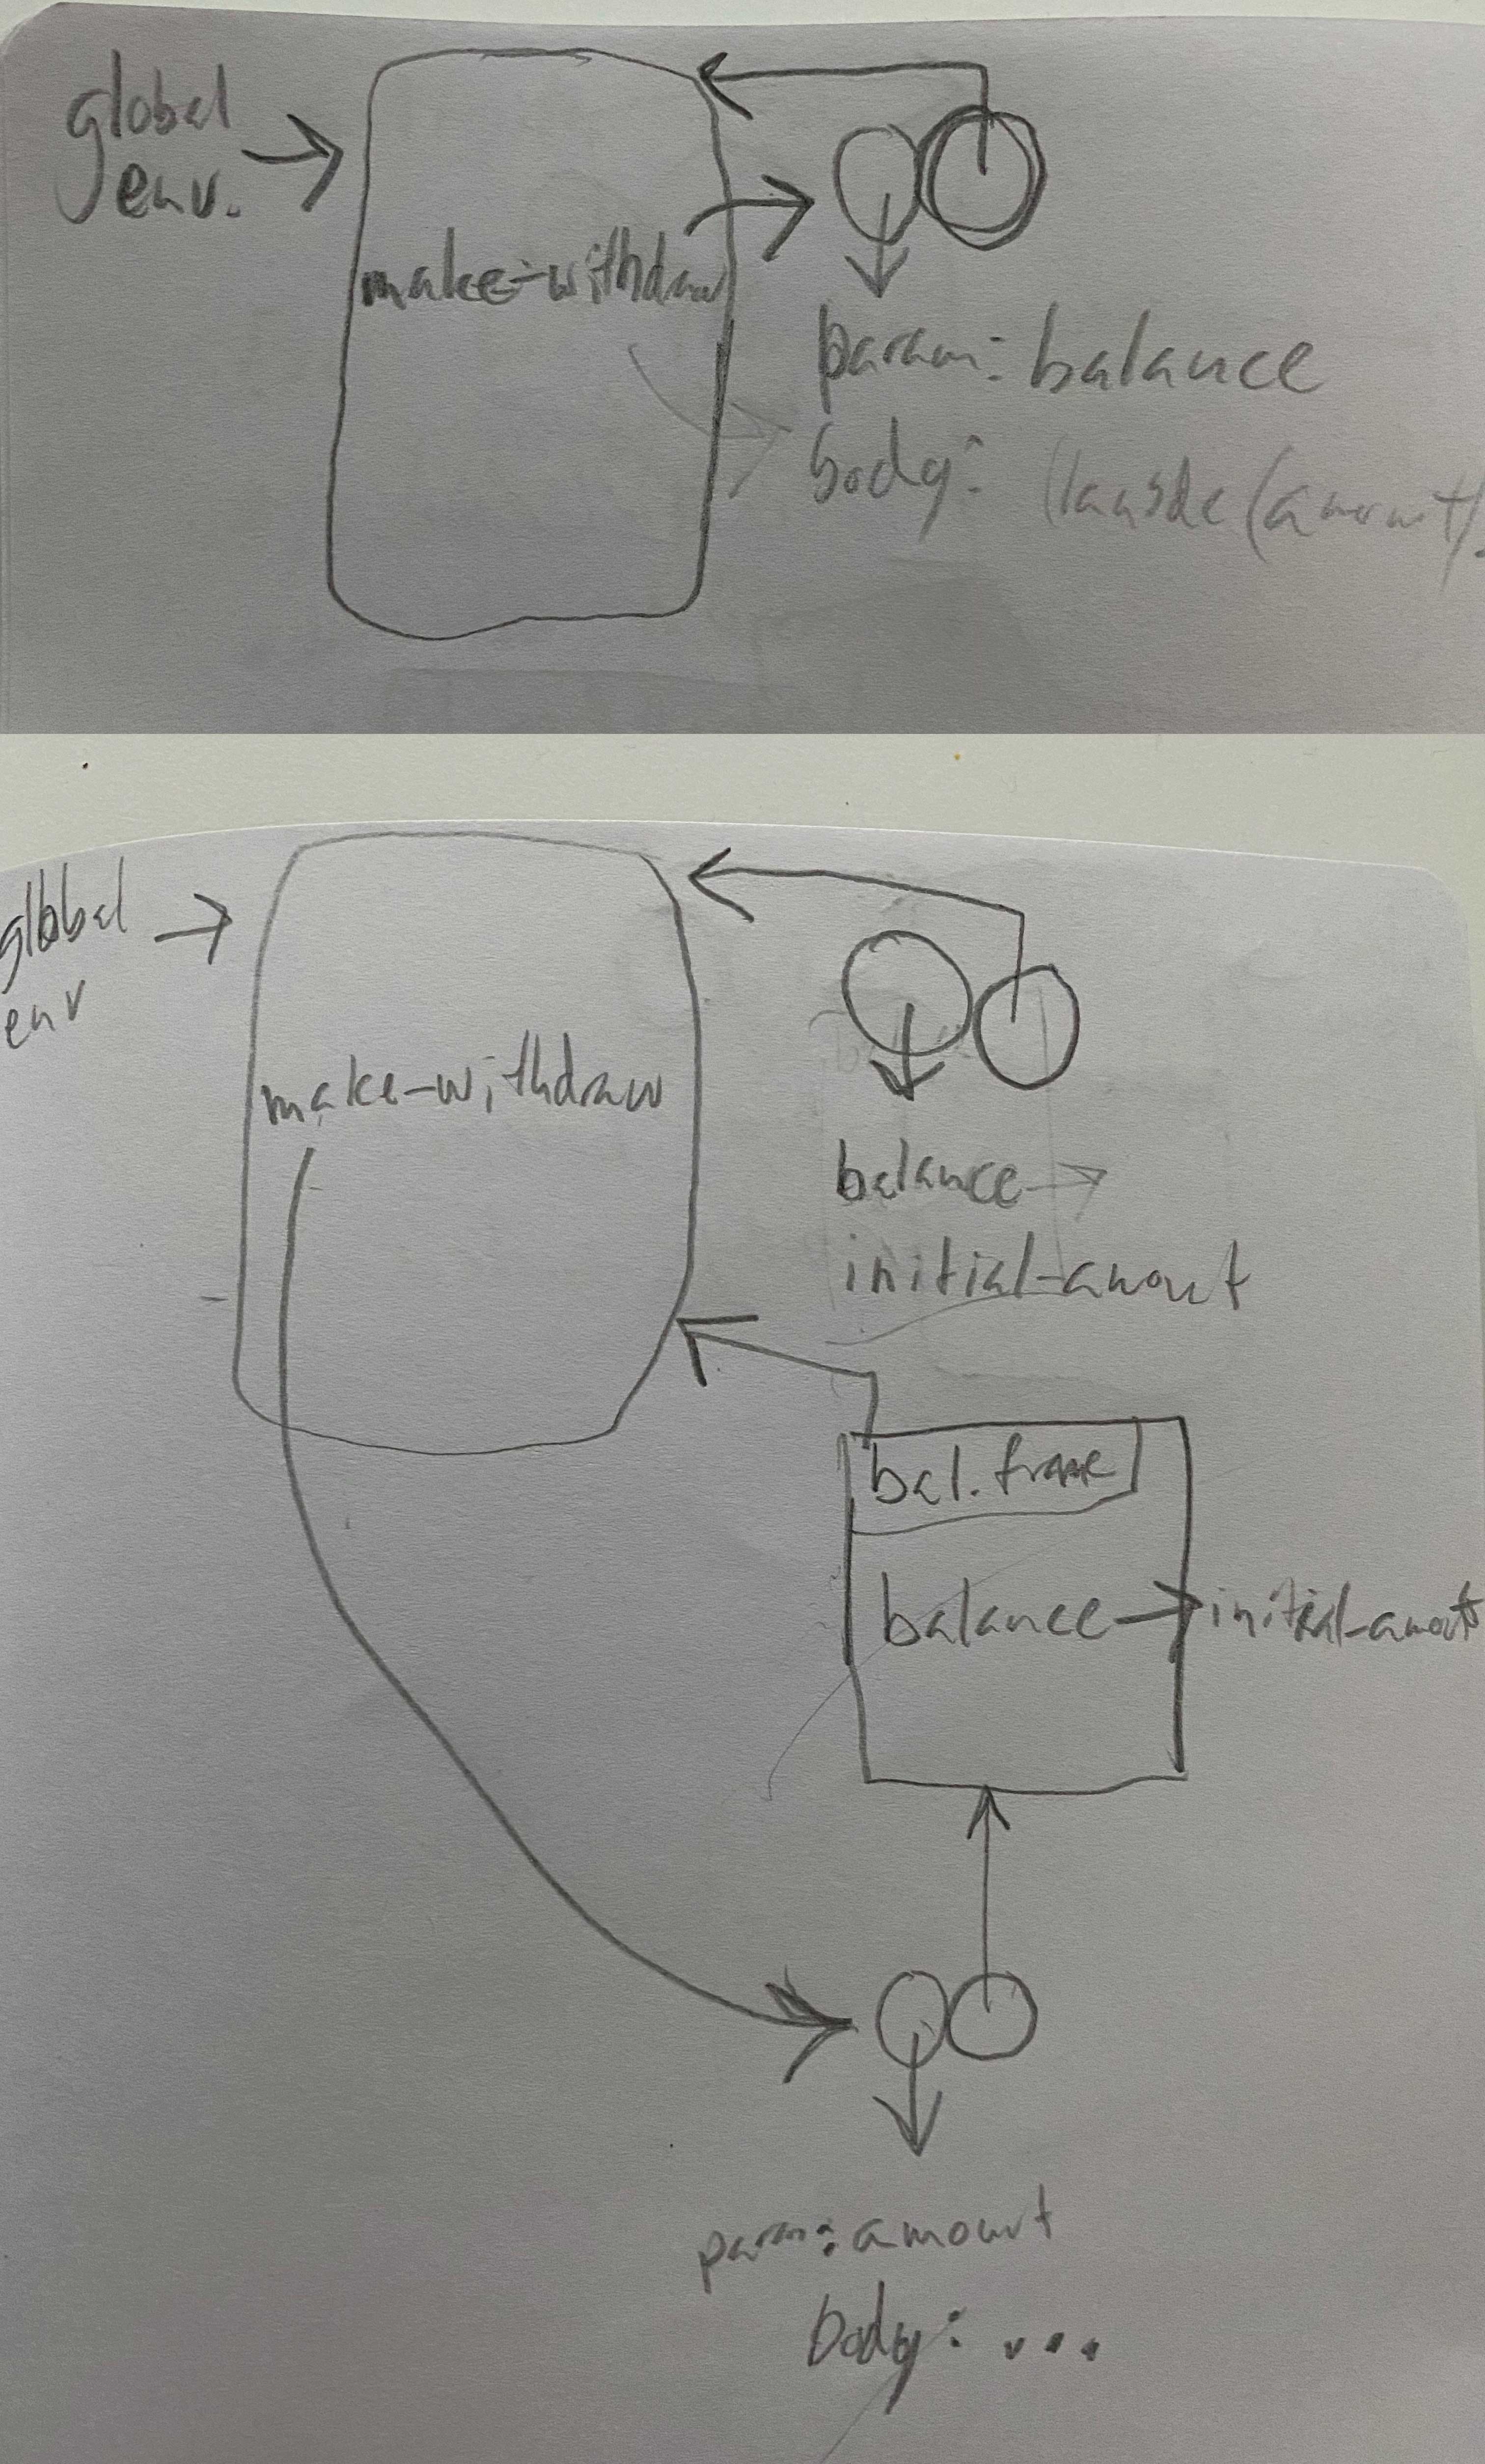 global
env.
make-withdraw
param: balance
body: (amount)
global
env
make-withdraw
balance →
initial-amout
bal. frame
balance → initial-amout
param: amount
body: ...